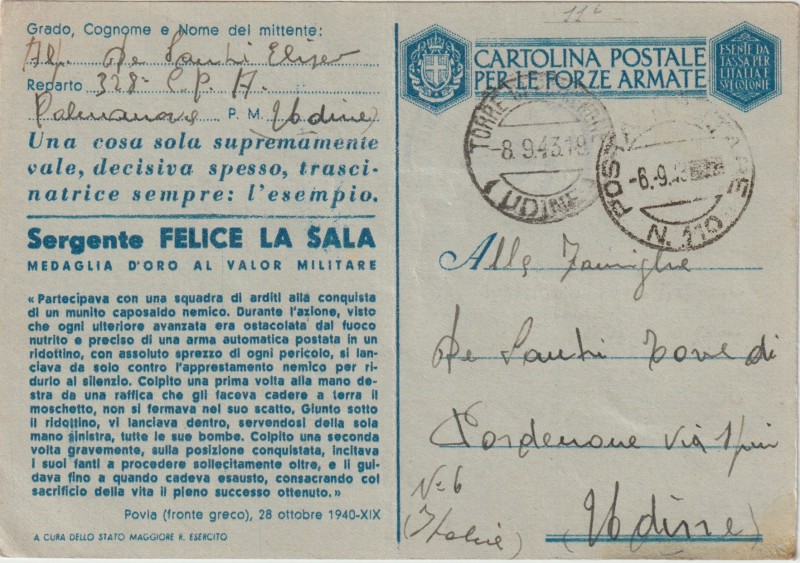 11ª
Grado, Cognome e Nome del mittente:
Alp. De Santi Eliseo
Reparto 328ª C.P. A.
Palmanova P. M. (Udine)
Una cosa sola supremamente
vale, decisiva spesso, trasci-
natrice sempre: l'esempio.
Sergente FELICE LA SALA
MEDAGLIA D'ORO AL VALOR MILITARE
«Partecipava con una squadra di arditi alla conquista
di un munito caposaldo nemico. Durante l'azione, visto
che ogni ulteriore avanzata era ostacolata dal fuoco
nutrito e preciso di una arma automatica postata in un
ridottino, con assoluto sprezzo di ogni pericolo, si lan-
ciava da solo contro l'apprestamento nemico per ri-
durlo al silenzio. Colpito una prima volta alla mano de-
stra da una raffica che gli faceva cadere a terra il
moschetto, non si fermava nel suo scatto, Giunto sotto
il ridottino, vi lanciava dentro, servendosi della sola
mano sinistra, tutte le sue bombe. Colpito una seconda
volta gravemente, sulla posizione conquistata, incitava
i suoi fanti a procedere sollecitamente oltre, e li gui-
dava fino a quando cadeva esausto, consacrando col
sacrificio della vita il pieno successo ottenuto.»
Povla (fronte greco), 28 ottobre 1940-XIX
A CURA DELLO STATO MAGGIORE R. ESERCITO
CARTOLINA POSTALE
PER LE FORZE ARMATE
ESENTE DA
TASSA PER
L'ITALIA E
SVE COLONIE
TORRE DI PORDENONE
-8.9.43.19
(UDINE)
POSTA MILITARE
-6.-9.43
N. 110
Alla Famiglia
De Santi Torre di
Pordenone via
Nº 6
(Italia) (Udine)